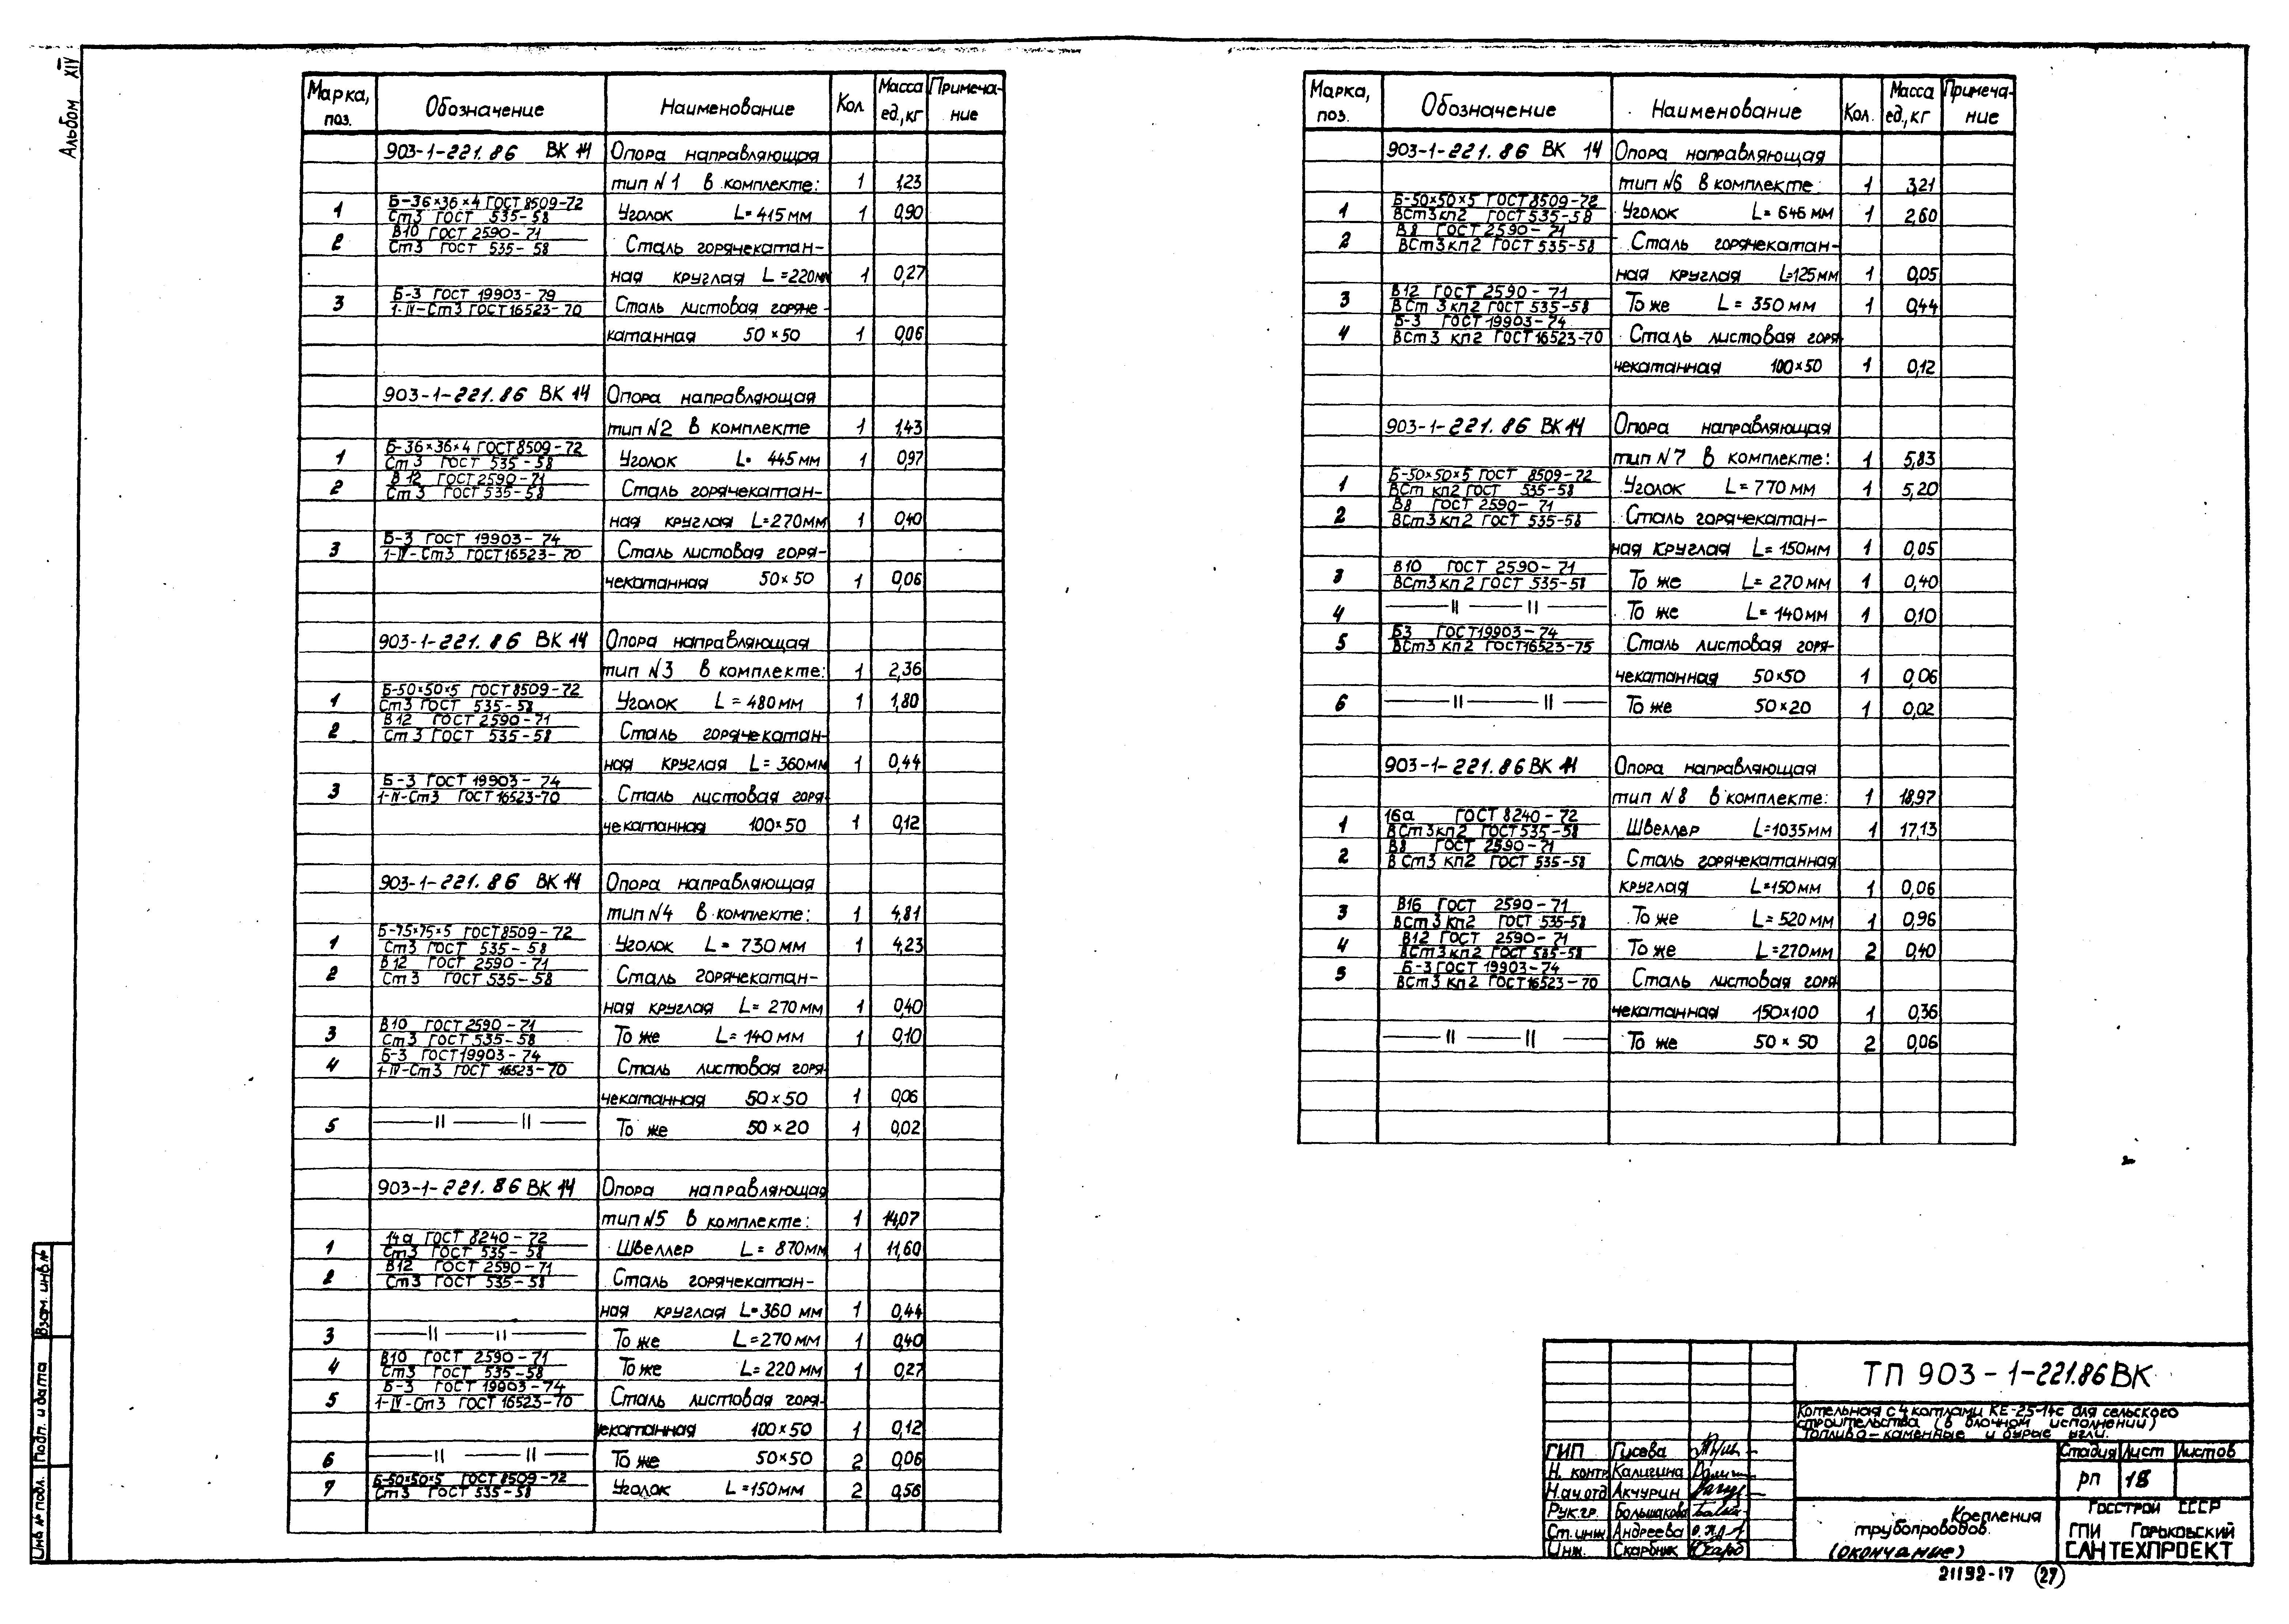 Альбом XIV
Марка, поз. Обозначение Наименование Кол Масса ед., кг Примечание
903-1-221.86 ВК 14 Опора направляющая
тип N1 в комплекте: 1 1,23
1 Б-36×36×4 ГОСТ 8509-72 / Ст3 ГОСТ 535-58 Уголок L=415мм 1 0,90
2 В10 ГОСТ 2590-71 / Ст3 ГОСТ 535-58 Сталь горячекатан-
ная круглая L=220мм 1 0,27
3 Б-3 ГОСТ 19903-79 / 1-IV-Ст3 ГОСТ 16523-70 Сталь листовая горяче-
катанная 50×50 1 0,06
903-1-221.86 ВК 14 Опора направляющая
тип N2 в комплекте 1 1,43
1 Б-36×36×4 ГОСТ 8509-72 / Ст3 ГОСТ 535-58 Уголок L=445мм 1 0,97
2 В12 ГОСТ 2590-71 / Ст3 ГОСТ 535-58 Сталь горячекатан-
ная круглая L=270мм 1 0,40
3 Б-3 ГОСТ 19903-74 / 1-IV-Ст3 ГОСТ 16523-70 Сталь листовая горя-
чекатанная 50×50 1 0,06
903-1-221.86 ВК 14 Опора направляющая
тип N3 в комплекте: 1 2,36
1 Б-50×50×5 ГОСТ 8509-72 / Ст3 ГОСТ 535-58 Уголок L=480мм 1 1,80
2 В12 ГОСТ 2590-71 / Ст3 ГОСТ 535-58 Сталь горячекатан-
ная круглая L=360мм 1 0,44
3 Б-3 ГОСТ 19903-74 / 1-IV-Ст3 ГОСТ 16523-70 Сталь листовая горя
чекатанная 100×50 1 0,12
903-1-221.86 ВК 14 Опора направляющая
тип N4 в комплекте: 1 4,81
1 Б-75×75×5 ГОСТ 8509-72 / Ст3 ГОСТ 535-58 Уголок L=730мм 1 4,23
2 В12 ГОСТ 2590-71 / Ст3 ГОСТ 535-58 Сталь горячекатан-
ная круглая L=270мм 1 0,40
3 В10 ГОСТ 2590-71 / Ст3 ГОСТ 535-58 То же L=140мм 1 0,10
4 Б-3 ГОСТ 19903-74 / 1-IV-Ст3 ГОСТ 16523-70 Сталь листовая горя
чекатанная 50×50 1 0,06
5 —"—"— То же 50×20 1 0,02
903-1-221.86 ВК 14 Опора направляющая
тип N5 в комплекте: 1 14,07
1 14а ГОСТ 8240-72 / Ст3 ГОСТ 535-58 Швеллер L=870мм 1 11,60
2 В12 ГОСТ 2590-71 / Ст3 ГОСТ 535-58 Сталь горячекатан-
ная круглая L=360мм 1 0,44
3 —"—"— То же L=270мм 1 0,40
4 В10 ГОСТ 2590-71 / Ст3 ГОСТ 535-58 То же L=220мм 1 0,27
5 Б-3 ГОСТ 19903-74 / 1-IV-Ст3 ГОСТ 16523-70 Сталь листовая горя-
чекатанная 100×50 1 0,12
6 —"—"— То же 50×50 2 0,06
7 Б-50×50×5 ГОСТ 8509-72 / Ст3 ГОСТ 535-58 Уголок L=150мм 2 0,56
Марка, поз. Обозначение Наименование Кол. Масса ед., кг Примечание
903-1-221.86 ВК 14 Опора направляющая
тип N6 в комплекте: 1 3,21
1 Б-50×50×5 ГОСТ 8509-72 / ВСт3кп2 ГОСТ 535-58 Уголок L=646мм 1 2,60
2 В8 ГОСТ 2590-71 / ВСт3кп2 ГОСТ 535-58 Сталь горячекатан-
ная круглая L=125мм 1 0,05
3 В12 ГОСТ 2590-71 / ВСт3кп2 ГОСТ 535-58 То же L=350мм 1 0,44
4 Б-3 ГОСТ 19903-74 / ВСт3 кп2 ГОСТ 16523-70 Сталь листовая горя
чекатанная 100×50 1 0,12
903-1-221.86 ВК 14 Опора направляющая
тип N7 в комплекте: 1 5,83
1 Б-50×50×5 ГОСТ 8509-72 / ВСт кп2 ГОСТ 535-58 Уголок L=770мм 1 5,20
2 В8 ГОСТ 2590-71 / ВСт3кп2 ГОСТ 535-58 Сталь горячекатан-
ная круглая L=150мм 1 0,05
3 В10 ГОСТ 2590-71 / ВСт3кп2 ГОСТ 535-58 То же L=270мм 1 0,40
4 —"—"— То же L=140мм 1 0,10
5 Б3 ГОСТ 19903-74 / ВСт3 кп2 ГОСТ 16523-75 Сталь листовая горя-
чекатанная 50×50 1 0,06
6 —"—"— То же 50×20 1 0,02
903-1-221.86 ВК 14 Опора направляющая
тип N8 в комплекте: 1 18,97
1 16а ГОСТ 8240-72 / ВСт3кп2 ГОСТ 535-58 Швеллер L=1035мм 1 17,13
2 В8 ГОСТ 2590-71 / ВСт3 кп2 ГОСТ 535-58 Сталь горячекатанная
круглая L=150мм 1 0,06
3 В16 ГОСТ 2590-71 / ВСт3кп2 ГОСТ 535-58 То же L=520мм 1 0,96
4 В12 ГОСТ 2590-71 / ВСт3кп2 ГОСТ 535-58 То же L=270мм 2 0,40
5 Б-3 ГОСТ 19903-74 / ВСт3 кп2 ГОСТ 16523-70 Сталь листовая горя
чекатанная 150×100 1 0,36
—"—"— То же 50×50 2 0,06
ТП 903-1-221.86 ВК
Котельная с 4 котлами КЕ-25-14с для сельского
строительства (в блочном исполнении)
Топливо-каменные и бурые угли.
ГИП Гусева
Н. контр Калигина
Нач.отд Акчурин
Рук.гр. Большакова
Ст.инж Андреева
Инж. Скарбник
Стадия Лист Листов
рп 18
Крепления
трубопроводов.
(окончание)
Госстрой СССР
ГПИ Горьковский
САНТЕХПРОЕКТ
21192-17 27
Взам. инв №
Подп. и дата
Инв № подл.